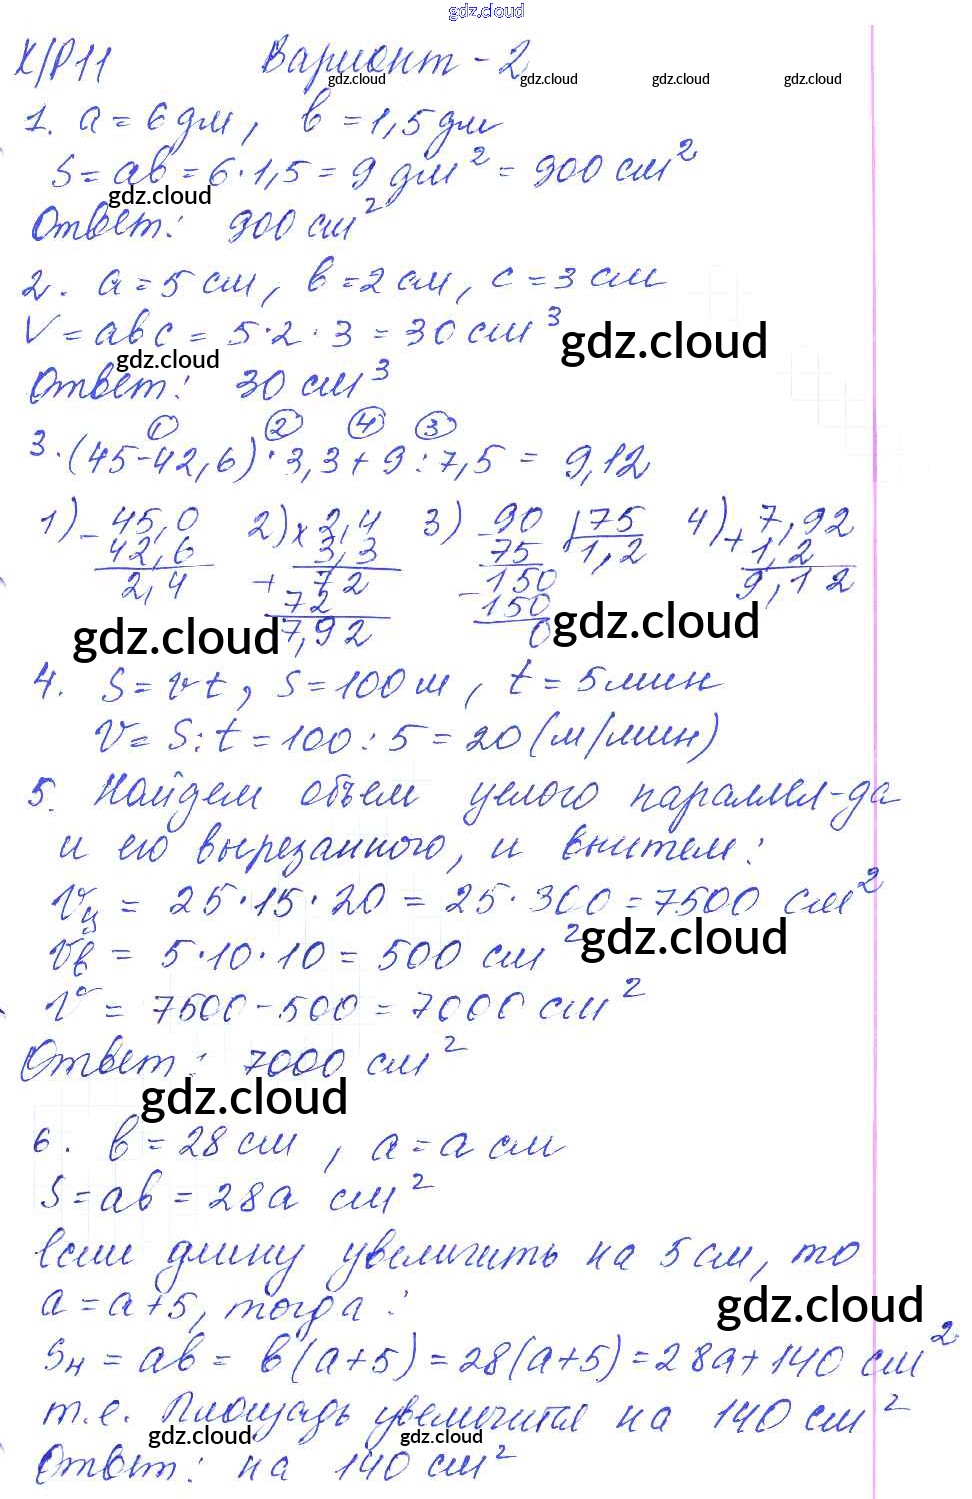 gdz.cloud
К/Р 11 Вариант - 2
gdz.cloud gdz.cloud gdz.cloud gdz.cloud
1. a = 6 дм, b = 1,5 дм
S = ab = 6 · 1,5 = 9 дм² = 900 см²
gdz.cloud
Ответ: 900 см²
2. a = 5 см, b = 2 см, c = 3 см
V = abc = 5 · 2 · 3 = 30 см³
gdz.cloud
gdz.cloud
Ответ: 30 см³
① ② ④ ③
3. (45 - 42,6) · 3,3 + 9 : 7,5 = 9,12
1) - 45,0 2) × 2,4 3) - 90 | 75 4) + 7,92
42,6 3,3 75 1,2 1,2
2,4 + 72 - 150 9,12
72 150
7,92 0
gdz.cloud gdz.cloud
4. S = vt, S = 100 м, t = 5 мин
V = S : t = 100 : 5 = 20 (м/мин)
5. Найдем объем целого параллел-да
и его вырезанного, и вычтем:
Vц = 25 · 15 · 20 = 25 · 300 = 7500 см²
gdz.cloud
Vв = 5 · 10 · 10 = 500 см²
V = 7500 - 500 = 7000 см²
Ответ: 7000 см²
gdz.cloud
6. b = 28 см, a = a см
S = ab = 28a см²
Если длину увеличить на 5 см, то
a = a + 5, тогда:
gdz.cloud
Sн = ab = b(a + 5) = 28(a + 5) = 28a + 140 см²
т.е. Площадь увеличится на 140 см²
gdz.cloud gdz.cloud
Ответ: на 140 см²